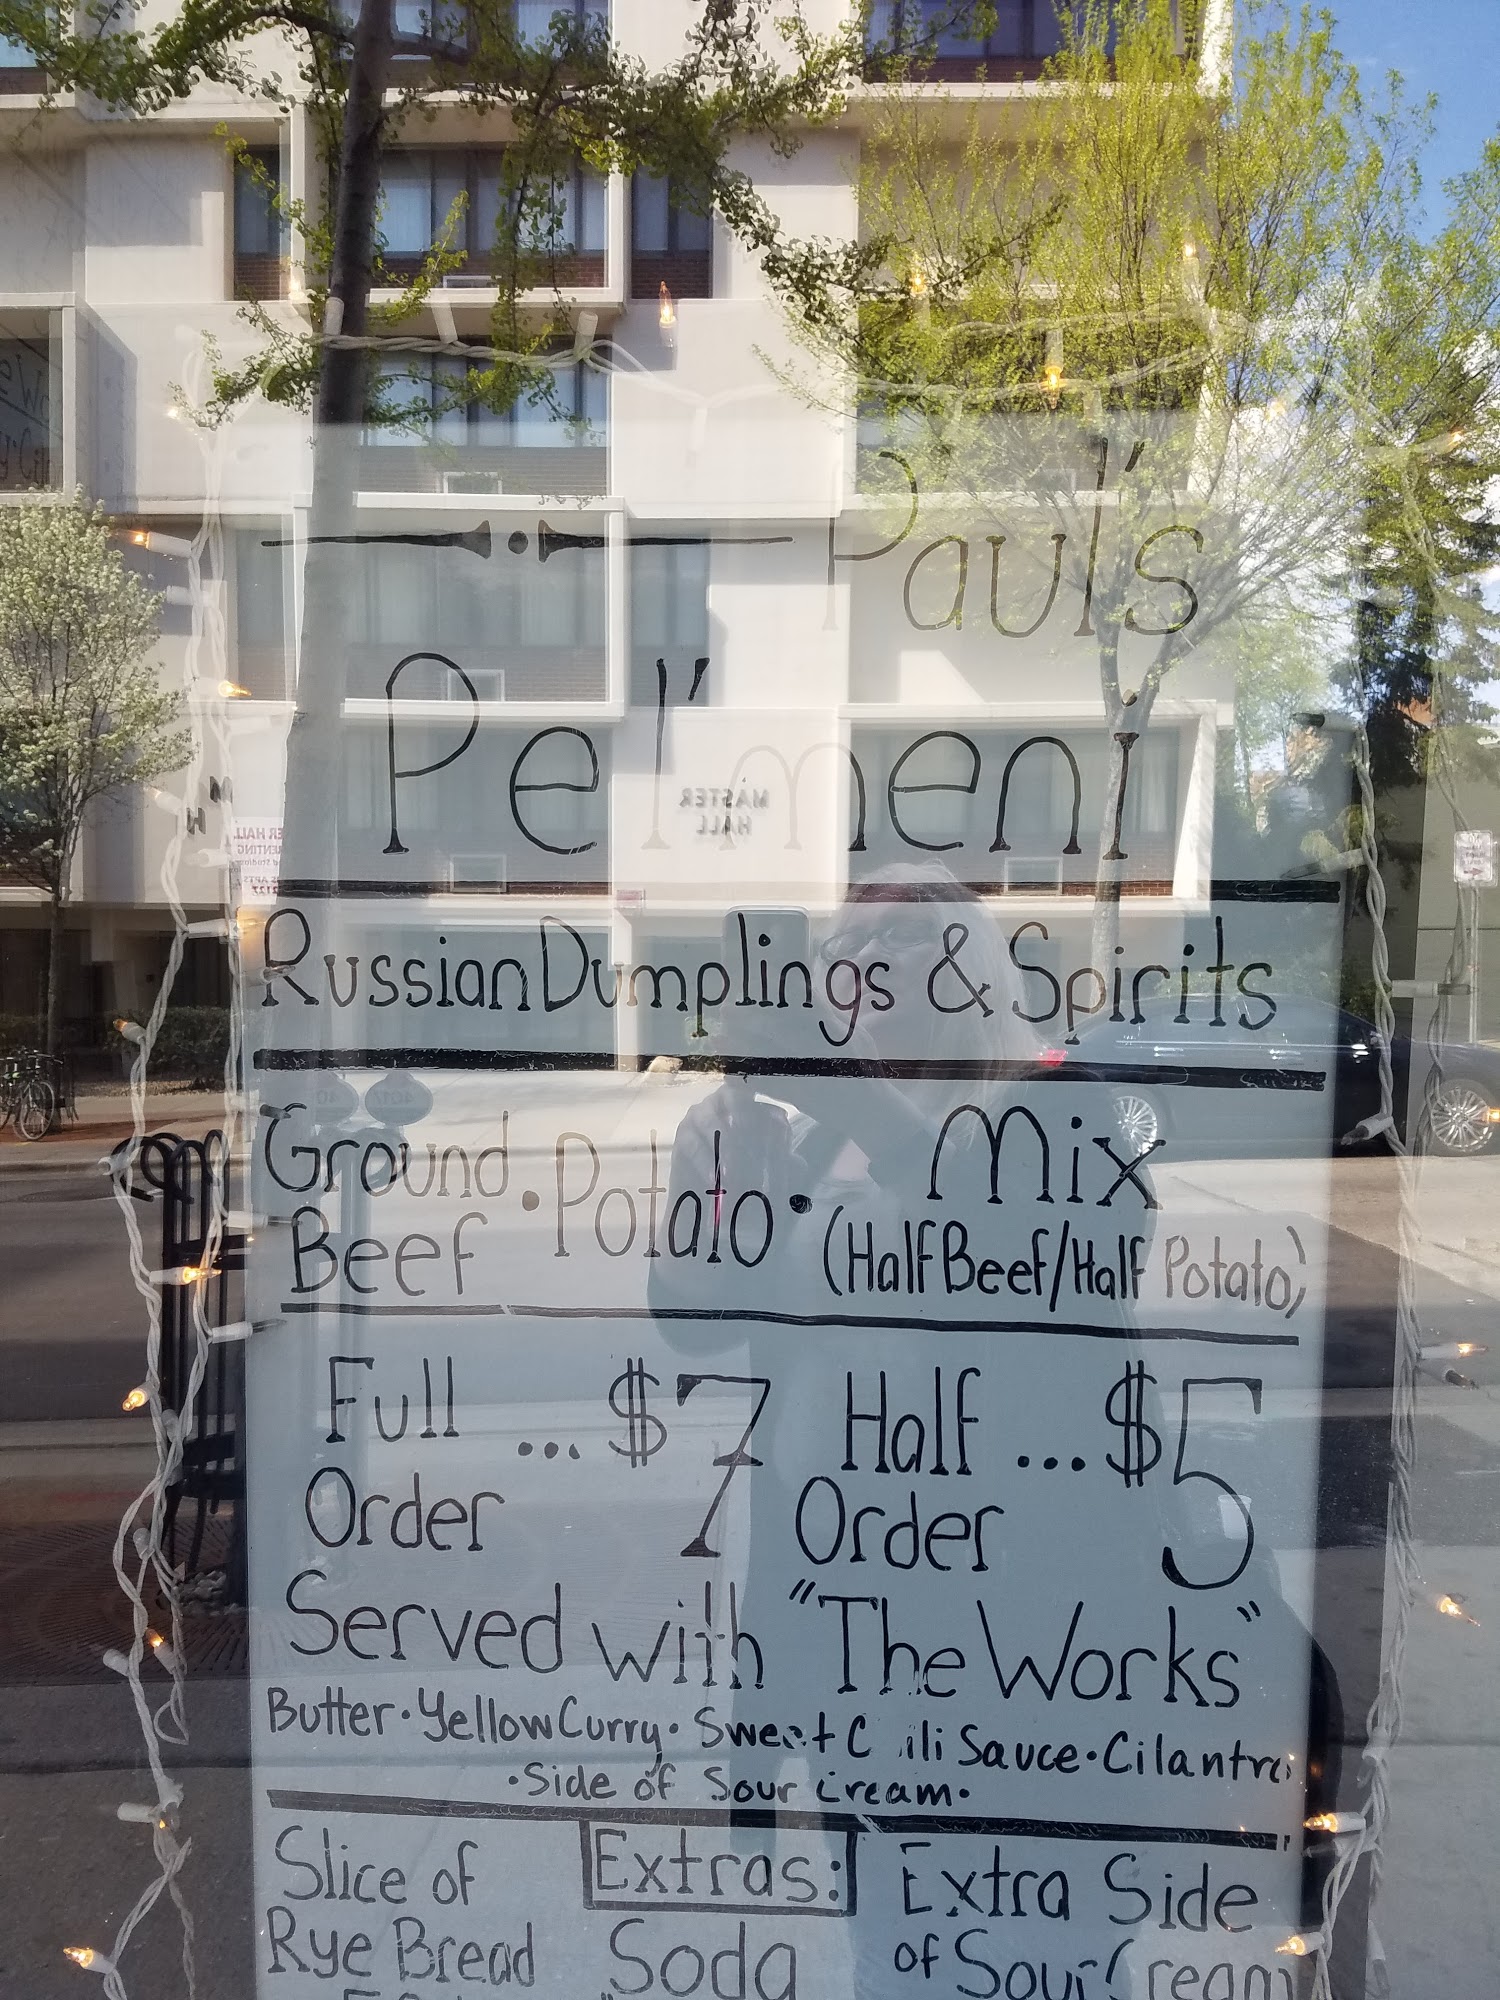 Paul's
Pel'meni
MASTER
HALL
Russian Dumplings & Spirits
Ground
Beef • Potato • Mix
(Half Beef/Half Potato)
Full
Order ... $7
Half
Order ... $5
Served with "The Works"
Butter • Yellow Curry • Sweet Chili Sauce • Cilantro
• Side of Sour Cream •
Extras:
Slice of
Rye Bread
Soda
Extra Side
of Sour Cream